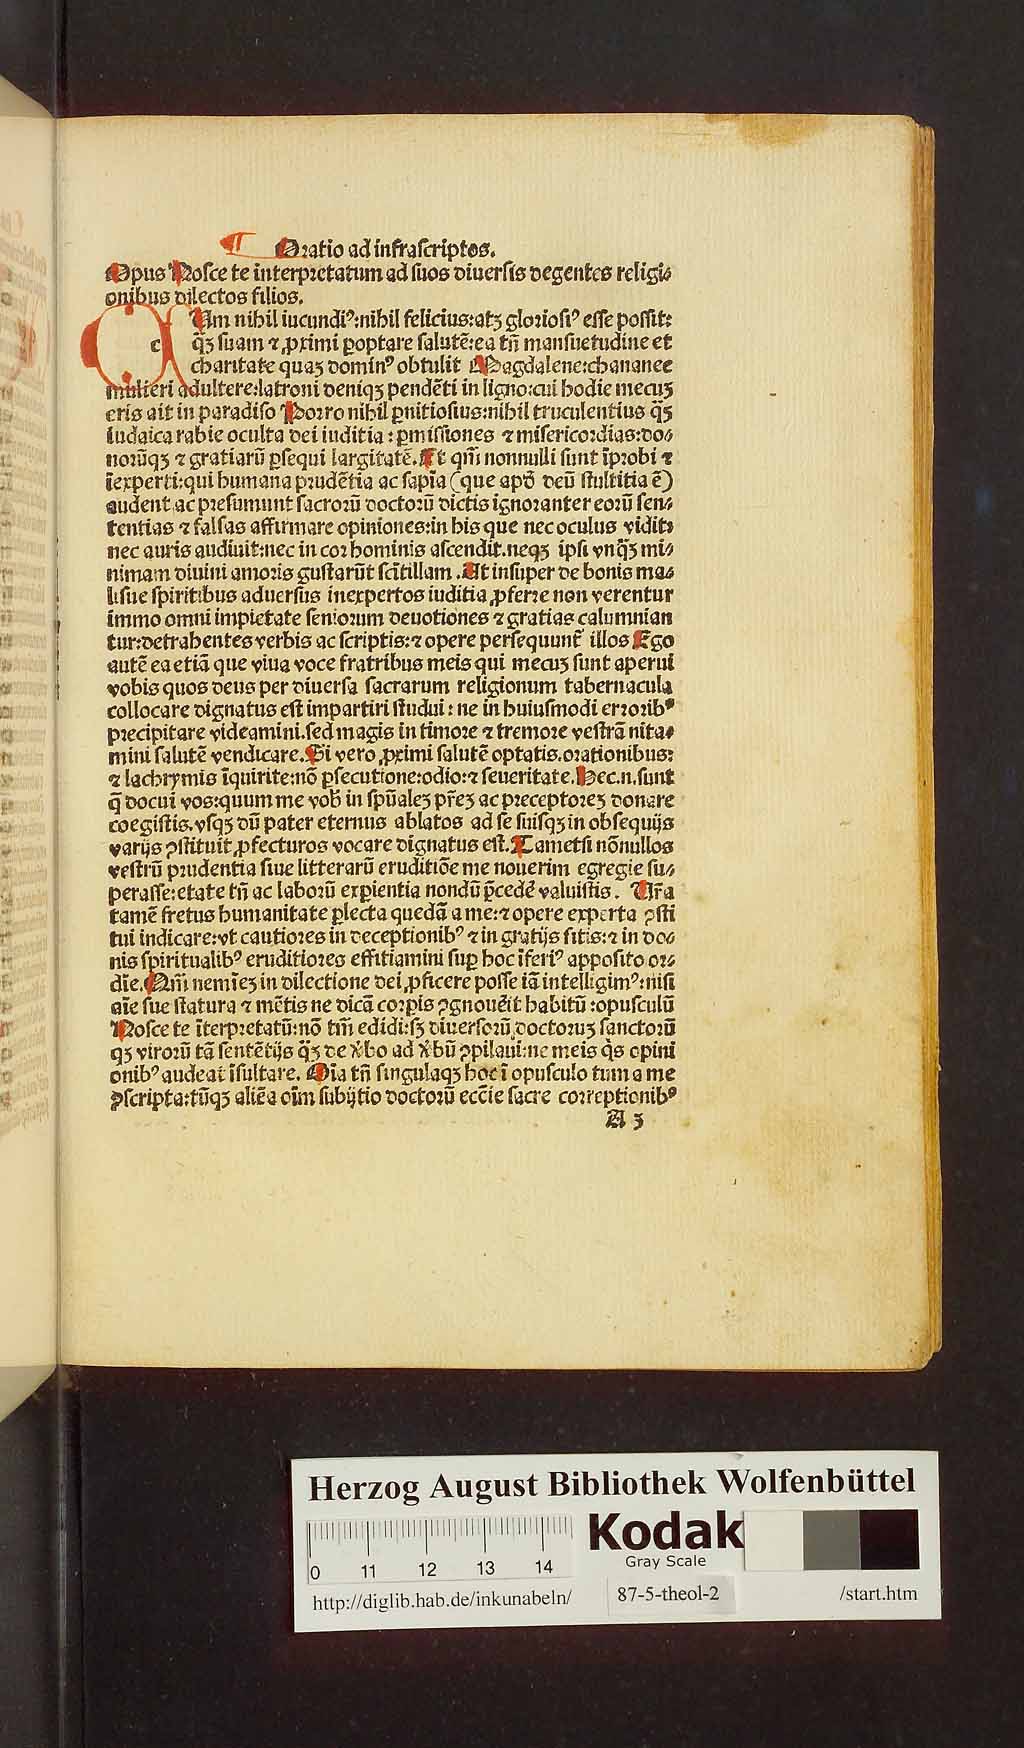 ¶ Oratio ad infrascriptos.
Opus Nosce te interpretatum ad suos diuersis degentes religi⸗
onibus dilectos filios.
CUm nihil iucundiꝰ:nihil felicius:atqꝫ gloriosiꝰ esse possit:
q̄ꝫ suam ⁊ ꝓximi ꝑoptare salutē:ea tn̄ mansuetudine et
charitate quaꝫ dominꝰ obtulit Magdalene:chananee
mulieri adultere:latroni deniqꝫ pendēti in ligno:cui hodie mecuꝫ
eris ait in paradiso Porro nihil ꝑnitiosius:nihil truculentius q̄ꝫ
iudaica rabie oculta dei iuditia : ꝑmissiones ⁊ misericordias:do⸗
norūqꝫ ⁊ gratiarū ꝑsequi largitatē. Et qm̄ nonnulli sunt īprobi ⁊
īexperti:qui humana prudētia ac sapīa (que apd̕ deū stultitia ē)
audent ac presumunt sacrorū doctorū dictis ignoranter eorū sen⸗
tentias ⁊ falsas affirmare opiniones:in his que nec oculus vidit:
nec auris audiuit:nec in cor hominis ascendit.neqꝫ ipsi vnq̄ꝫ mi⸗
nimam diuini amoris gustarūt scītillam .At insuper de bonis ma⸗
lisue spiritibus aduersus inexpertos iuditia ꝓferre non verentur
immo omni impietate seniorum deuotiones ⁊ gratias calumnian
tur:detrahentes verbis ac scriptis:⁊ opere persequunt᷑ illos Ego
autē ea etiā que viua voce fratribus meis qui mecuꝫ sunt aperui
vobis quos deus per diuersa sacrarum religionum tabernacula
collocare dignatus est impartiri studui : ne in huiusmodi erroribꝰ
precipitare videamini.sed magis in timore ⁊ tremore vestrā nita⸗
mini salutē vendicare. Si vero ꝓximi salutē optatis.orationibus:
⁊ lachrymis īquirite:nō ꝑsecutione:odio:⁊ seueritate. Hec.n.sunt
q̄ docui vos:quum me vob̕ in spūaleꝫ pr̄eꝫ ac preceptoreꝫ donare
coegistis.vsqꝫ dū pater eternus ablatos ad se suisqꝫ in obsequijs
varijs ꝯstituit ꝓfecturos vocare dignatus est. Tametsi nōnullos
vestrū prudentia siue litterarū eruditiōe me nouerim egregie su⸗
perasse:etate tn̄ ac laborū exꝑientia nondū p̄cedē valuistis . Ur̄a
tamē fretus humanitate ꝑlecta quedā a me:⁊ opere experta ꝯsti
tui indicare:vt cautiores in deceptionibꝰ ⁊ in gratijs sitis:⁊ in do⸗
nis spiritualibꝰ eruditiores effitiamini suꝑ hoc īferiꝰ apposito or⸗
dīe. Qm̄ nemīeꝫ in dilectione dei ꝓficere posse iā intelligimꝰ:nisi
aīe sue statura ⁊ mētis ne dicā corꝑis ꝯgnouēit habitū :opusculū
Nosce te īterpretatū:nō tm̄ edidi:sꝫ diuersorū doctoruꝫ sanctorū
qꝫ virorū tā sentētijs q̄ꝫ de v̄bo ad v̄bū ꝯpilaui:ne meis q̇s opini
onibꝰ audeat īsultare. Oīa tn̄ singulaqꝫ hoc ī opusculo tum a me
ꝯscripta:tūqꝫ aliēa oīm subijtio doctorū ecc̄ie sacre correptionibꝰ
A 3
Herzog August Bibliothek Wolfenbüttel
Kodak
Gray Scale
0 11 12 13 14
http://diglib.hab.de/inkunabeln/ 87-5-theol-2 /start.htm